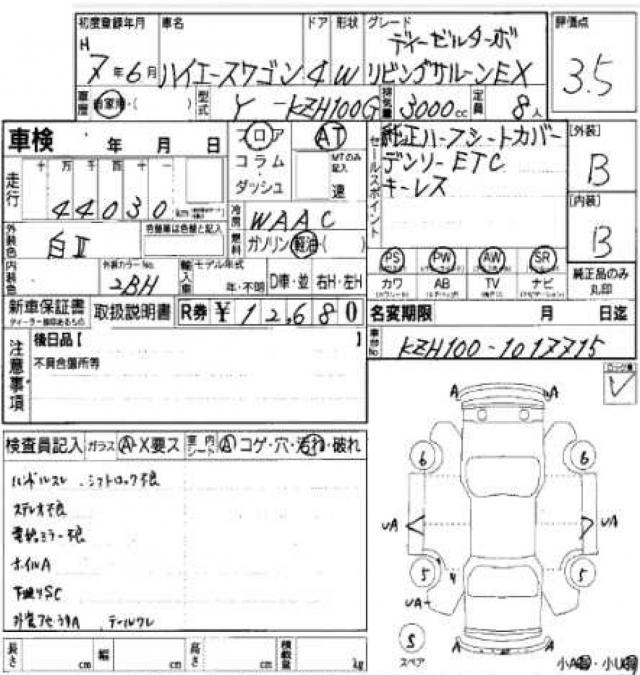 初度登録年月 車名 ドア 形状 グレード 評価点
H
7年6月 ハイエースワゴン 4 W ディーゼルターボ
リビングサルーンEX
3.5
車歴 自家用・( ) 型式 Y-KZH100G 排気量 3000cc 定員 8人
車検 年 月 日
フロア コラム ダッシュ
AT
MTのみ記入
速
セールスポイント
純正ハーフシートカバー
デンソーETC
キーレス
[外装]
B
[内装]
B
走行 十 万 千 百 十 一
44030 km
冷房 WAAC
燃料 ガソリン・軽油・( )
外装色 白II 色替車は色替と記入
内装色 外装カラーNo. 2BH
輸入車 モデル年式 年・不明 D車・並 右H・左H
PS PW AW SR
カワ AB TV ナビ
純正品のみ丸印
新車保証書 ディーラー捺印あるもの 取扱説明書 R券 ¥12,680
名変期限 月 日迄
車台No KZH100-1017715
注意事項
後日品【 】
不具合箇所等
検査員記入 ガラス A・X要ス 車内シート A コゲ・穴・汚れ・破れ
ハンドルスレ シフトロック不良
ステレオ不良
電格ミラー不良
ホイルA
下廻りSC
長さ cm 幅 cm 高さ cm 積載量 kg
A A
6 6
UA UA
5 4 5
UA
S
スペア
A A